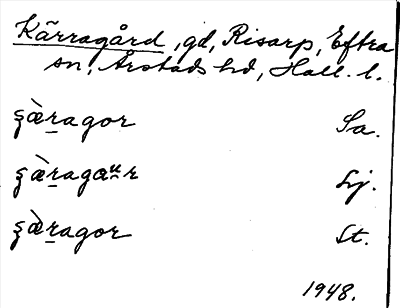 Kärragård, gd, Risarp, Eftra
sn, Årstads hd, Hall. l.
ʂæ̀ragor Sa.
ʂæ̀ragaᵘr Lj.
ʂæ̀ragor St.
1948.